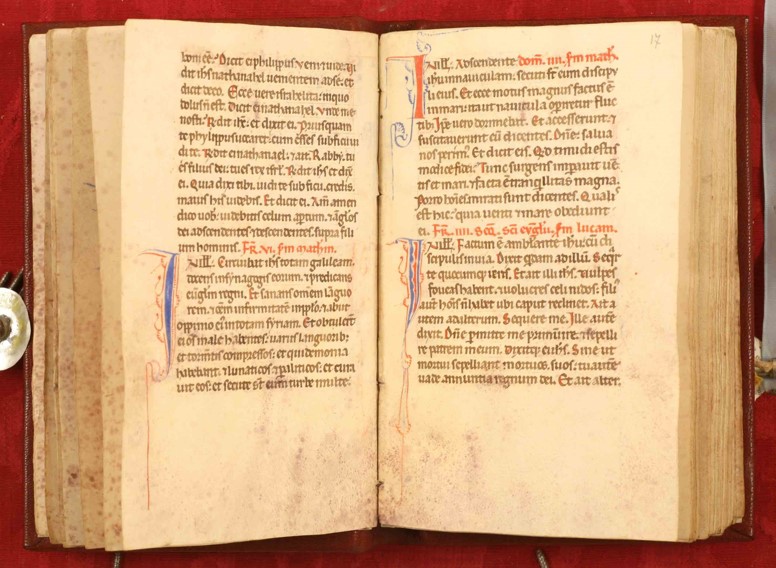 boni eē. Dicit ei philippus. Veni ⁊ uide. Vi
dit ih̄s nathanahel uenientem ad se. et
dicit de eo. Ecce uere israhelita: in quo
dolus n̄ est. Dicit ei nathanahel. Vnde me
nosti. R̄dit ih̄c. et dixit ei. Priusquam
te phylippus uocaret: cum esses sub ficu ui
di te. R̄dit ei nathanael. ⁊ ait. Rabby. tu
es filius dei: tu es rex isrl̄. R̄dit ih̄s et dix̄
ei. Quia dixi tibi. uidi te sub ficu. credis.
maius hiis uidebis. Et dicit ei. Am̄ amen
dico uob̄: uidebitis celum ap̄tum. ⁊ angl̄os
dei ascendentes ⁊ descendentes. supra fili
um hominis. FR̄. VI. scd̄m math̄m.
IN ill̄. Circuibat ih̄s totam galileam.
docens in synagogis eorum. ⁊ predicans
eūgl̄m regni. Et sanans om̄em languo
rem. ⁊ om̄em infirmitatē in pp̄lo. ⁊ abiit
oppinio ei' in totam syriam. Et obtulerūt
ei om̄s male habentes. uariis languorib;
et torm̄tis compressos: et qui demonia
habebant. ⁊ lunaticos ⁊ paliticos. et cura
uit eos: et secute sūt eum turbe multe.
17
IN ill̄. Ascendente dom̄. IIII. scd̄m math̄.
ih̄u in nauiculam: secuti sūt eum discipu
li eius. Et ecce motus magnus factus ē
in mari: ita ut nauicula op̄iretur fluc
tib;. Ip̄e uero dormiebat. Et accesserunt. ⁊
suscitauerunt eū dicentes. Dn̄e. salua
nos perim'. Et dicit eis. Qd̄ timidi estis
modice fidei: Tunc surgens imp̄auit uē
tis et mari. ⁊ facta ē tranquilitas magna.
Porro hoīes mirati sunt dicentes. Qualis
est hic. quia uenti ⁊ mare obediunt
ei. FR̄. IIII. Scd̄. sc̄i euḡlii. scd̄m lucam.
IN ill̄. Factum ē ambulante ih̄u cū di
scipulis in uia. Dixit quidam ad illū. Seqr̄
te quocumq; ieris. Et ait illi ih̄s. Vulpes
foueas habent. ⁊ uolucres celi nidos: fili'
aut̄ hoīs n̄ habet ubi caput reclinet. Ait a
utem ad alterum. Sequere me. Ille aut̄
dixit. Dn̄e p̄mitte me primū ire. ⁊ sepelli
re patrem meum. Dixitq; ei ih̄s. Sine ut
mortui sepelliant mortuos. suos. tu aut̄
uade. annuntia regnum dei. Et ait alter.